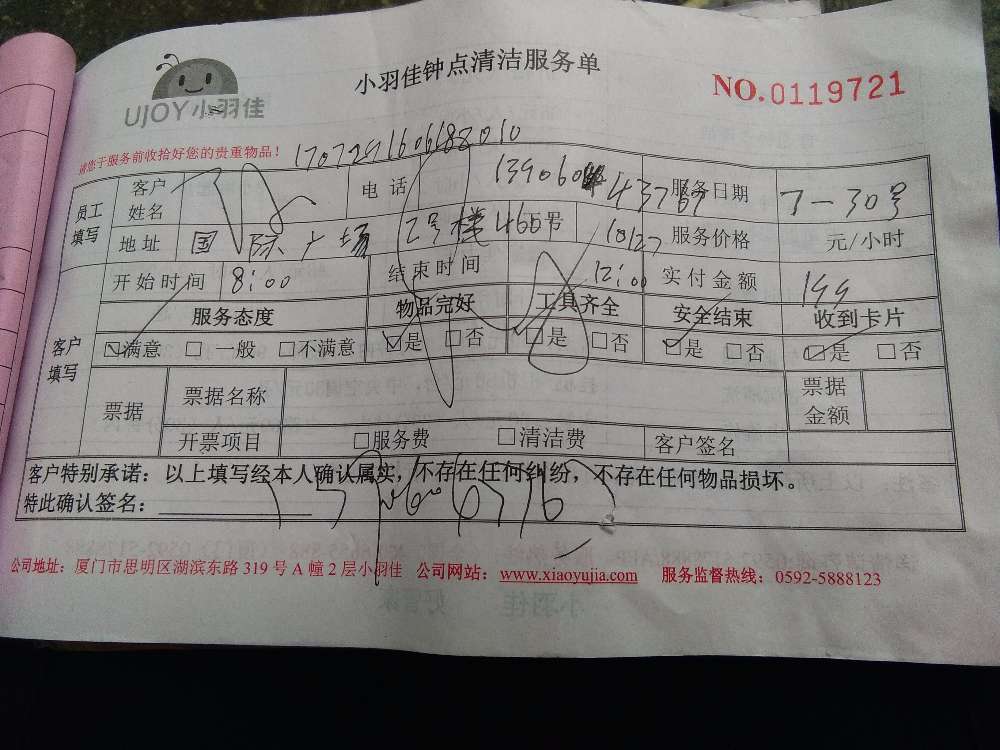 小羽佳钟点清洁服务单
NO.0119721
UJOY小羽佳
请您于服务前收拾好您的贵重物品!
员工填写 客户姓名 电话 服务日期 7-30号
地址 国际广场 2号楼 服务价格 元/小时
客户填写 开始时间 8:00 结束时间 12:00 实付金额 199
服务态度 物品完好 工具齐全 安全结束 收到卡片
☑满意 □一般 □不满意 ☑是 □否 ☑是 □否 ☑是 □否 ☑是 □否
票据 票据名称 票据金额
开票项目 □服务费 □清洁费 客户签名
客户特别承诺:以上填写经本人确认属实,不存在任何纠纷,不存在任何物品损坏。
特此确认签名:
公司地址:厦门市思明区湖滨东路319号A幢2层小羽佳 公司网站:www.xiaoyujia.com 服务监督热线:0592-5888123